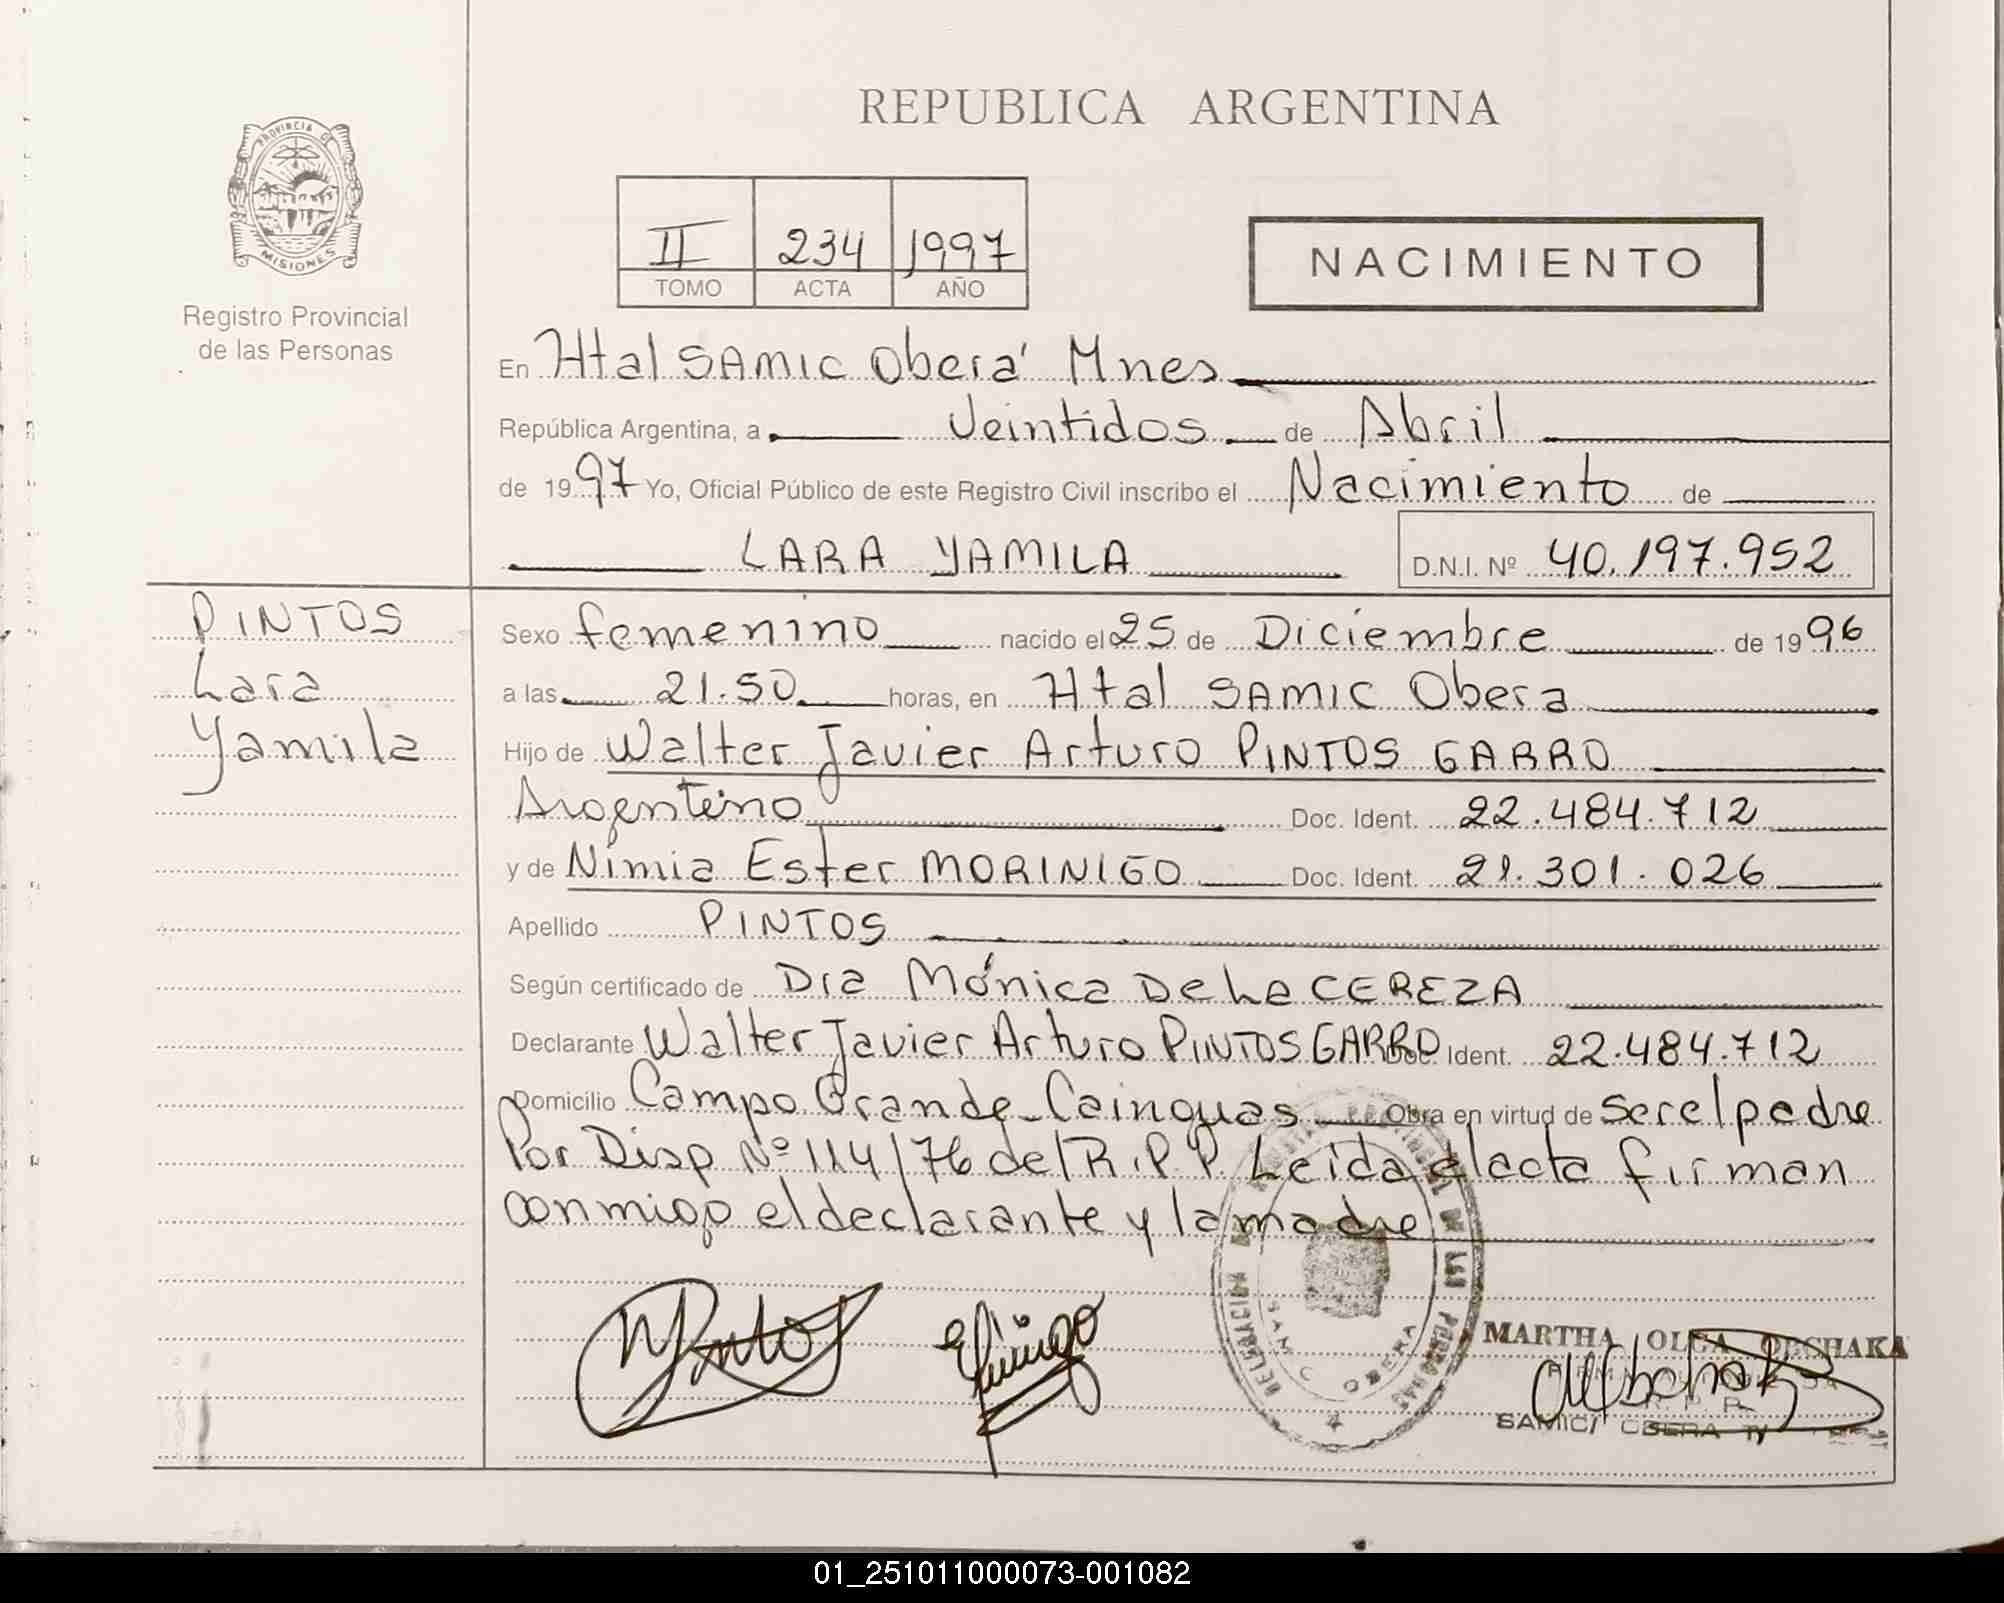 REPUBLICA ARGENTINA
PROVINCIA DE
MISIONES
Registro Provincial
de las Personas
II 234 1997
TOMO ACTA AÑO
NACIMIENTO
En Htal SAMIC Oberá Mnes
República Argentina, a Veintidos de Abril
de 1997 Yo, Oficial Público de este Registro Civil inscribo el Nacimiento de
LARA YAMILA D.N.I. Nº 40.197.952
PINTOS
Lara
Yamila
Sexo femenino nacido el 25 de Diciembre de 1996
a las 21.50 horas, en Htal SAMIC Obera
Hijo de Walter Javier Arturo PINTOS GARRO
Argentino Doc. Ident. 22.484.712
y de Nimia Ester MORINIGO Doc. Ident. 21.301.026
Apellido PINTOS
Según certificado de Dra Mónica De La CEREZA
Declarante Walter Javier Arturo PINTOS GARRO Doc. Ident. 22.484.712
Domicilio Campo Grande-Cainguas Obra en virtud de ser el padre
Por Disp Nº 114/76 del R.P.P. Leida el acta firman
conmigo el declarante y la madre
DELEGACION DE LAS PERSONAS
SAMIC OBERA
MARTHA OLGA
SAMIC OBERA
01_251011000073-001082